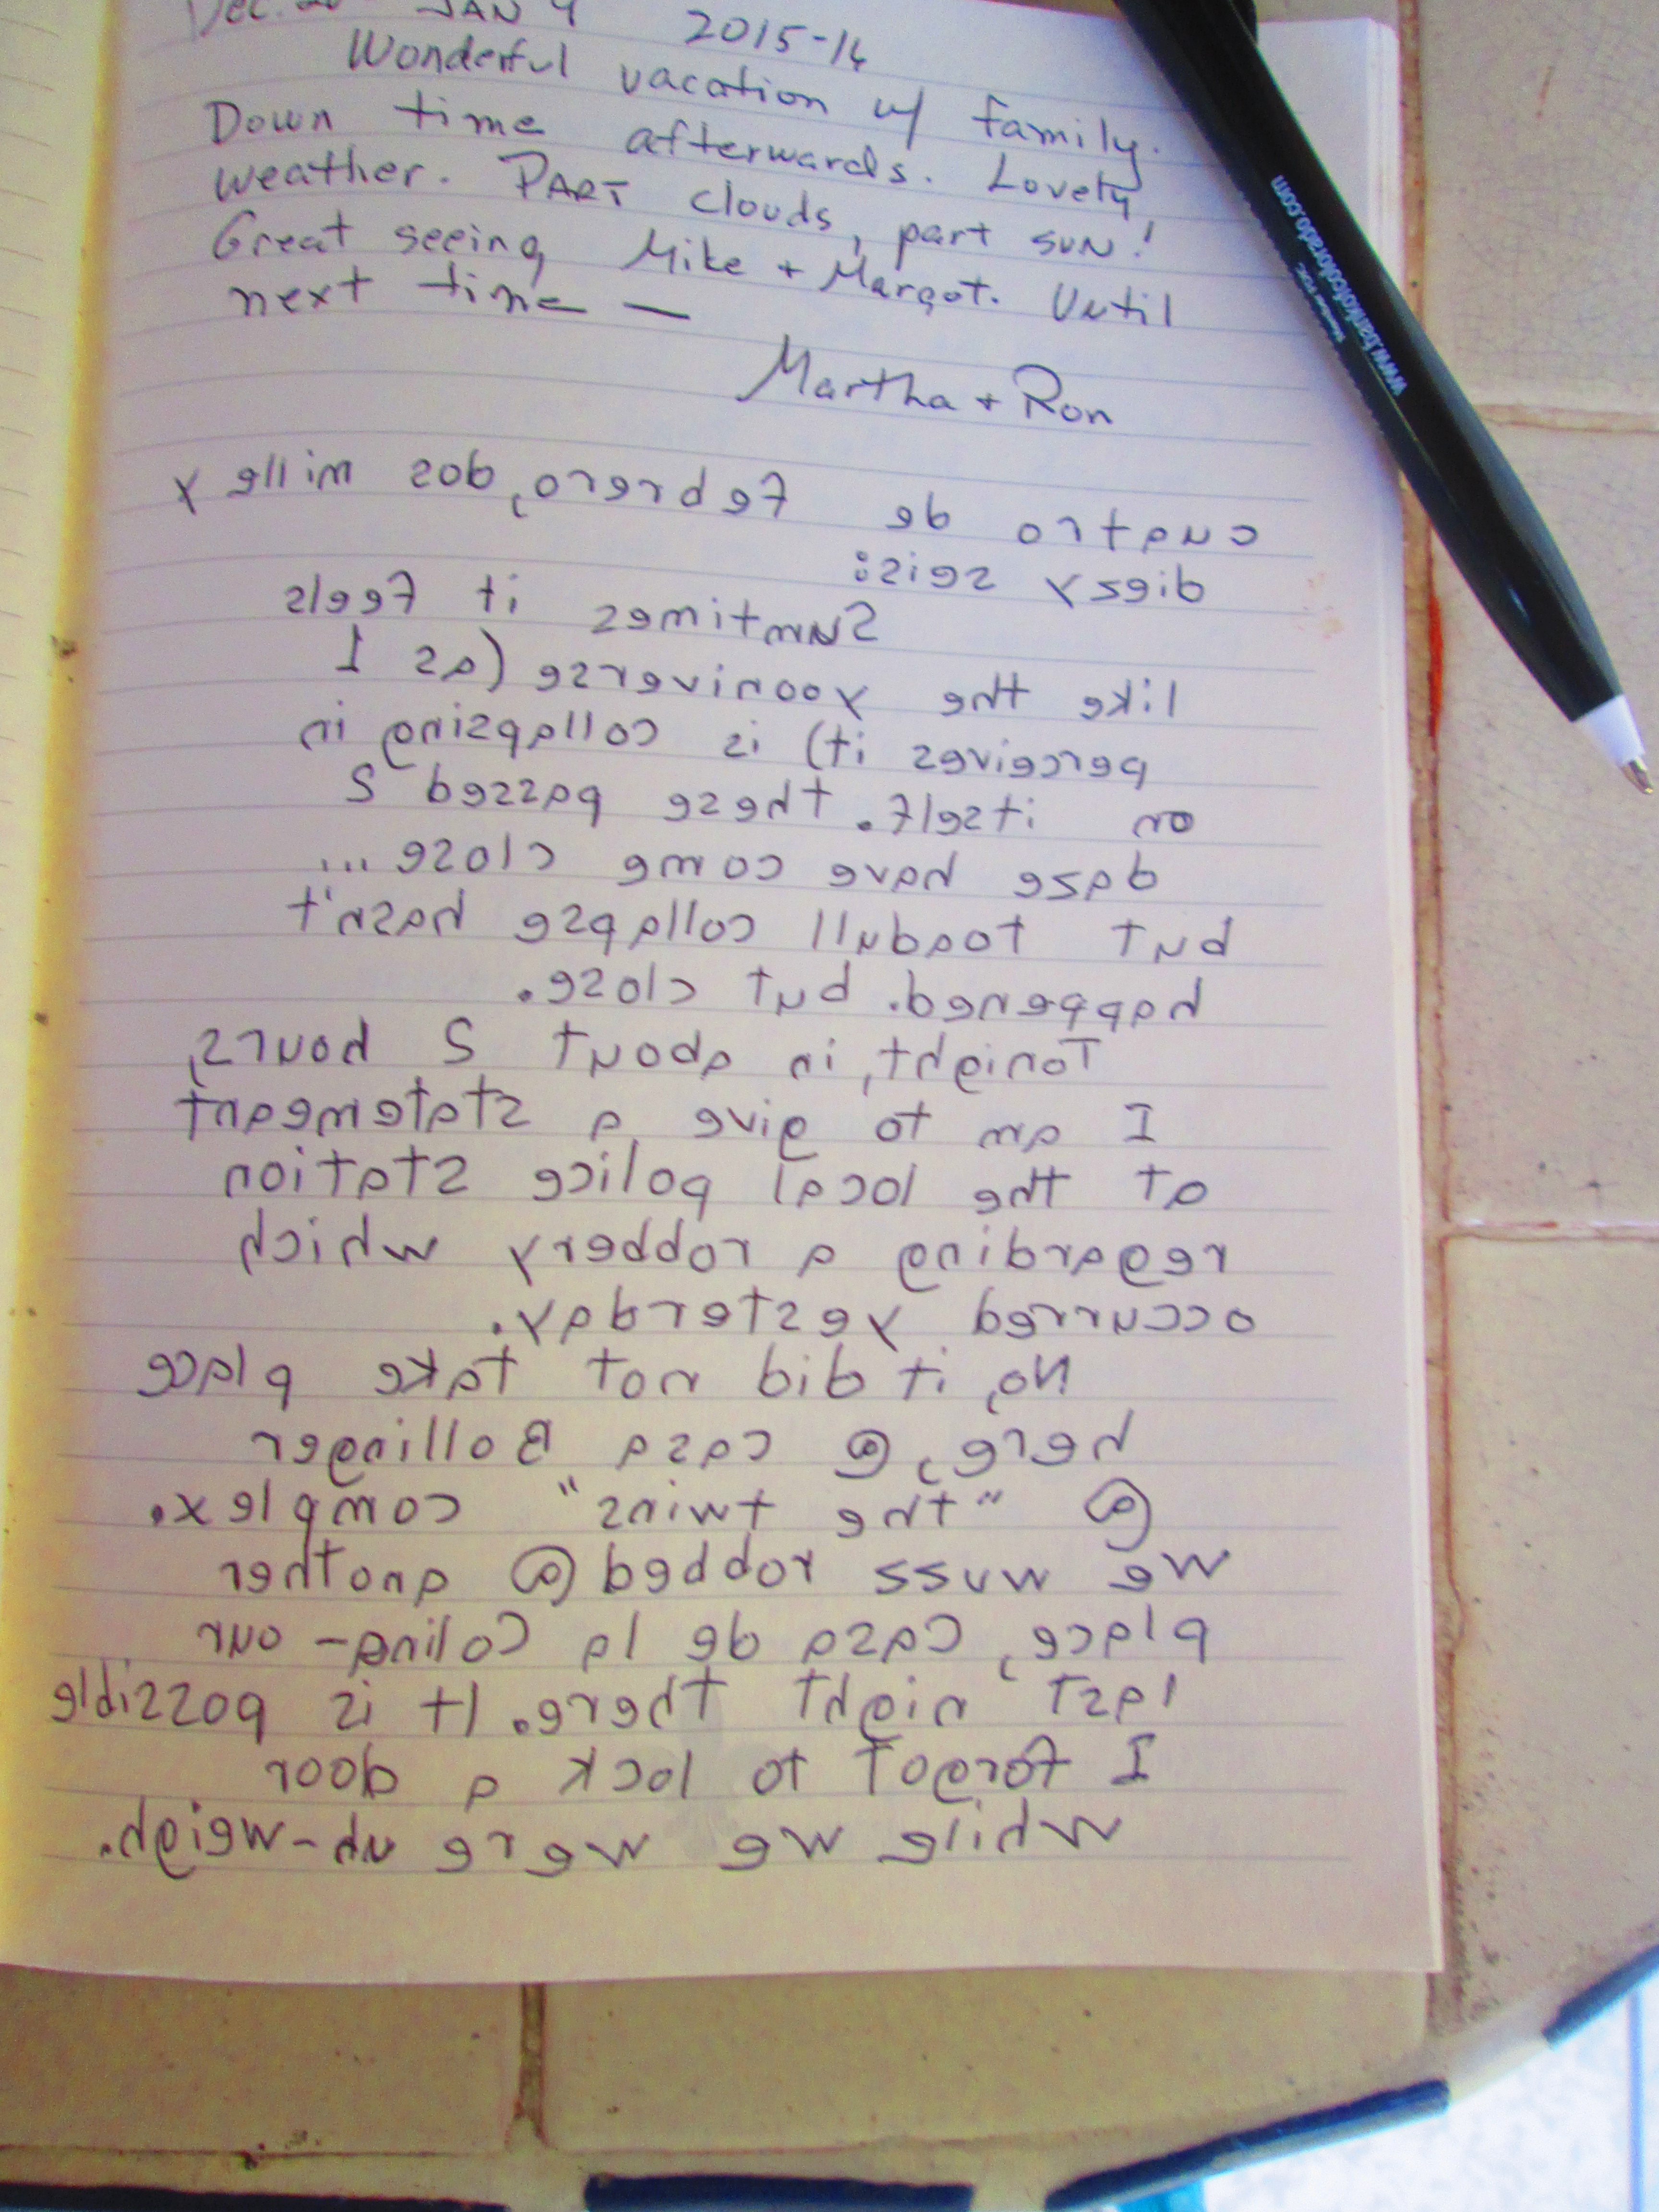 Dec. JAN 2015-16
Wonderful vacation w/ family.
Down time afterwards. Lovely
weather. PART clouds, part sun!
Great seeing Mike + Margot. Until
next time —
Martha + Ron
cuatro de Febrero, dos mille y
diesy seis:
Sumtimes it feels
like the yooniverse (as I
perceives it) is collapsing in
on itself. these passed 2
daze have come close...
but toadull collapse hasn't
happened. but close.
Tonight, in about 2 hours,
I am to give a statemeant
at the local police station
regarding a robbery which
occurred yesterday.
No, it did not take place
here, @ casa Bollinger
@ "the twins" complex.
we wuss robbed @ another
place, Casa de la Colina - our
last night there. It is possible
I forgot to lock a door
while we were uh-weigh.
www.bankofcolorado.com
Member FDIC